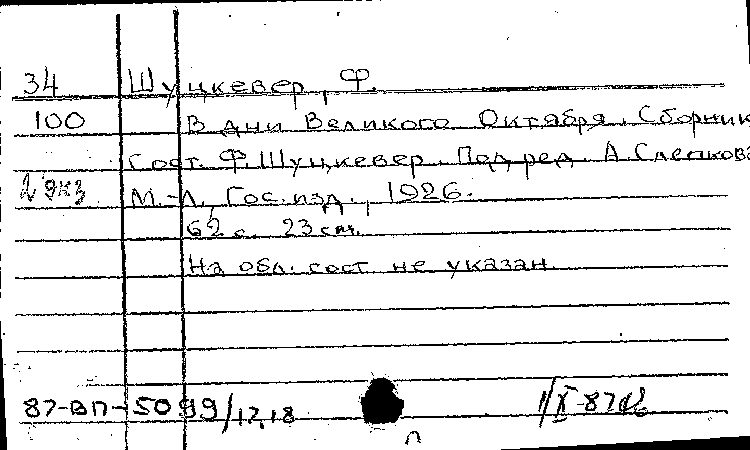 34 Шуцкевер, Ф.
100 В дни Великого Октября. Сборник
Сост. Ф. Шуцкевер. Под ред. А. Слепкова
2 экз М.-Л., Гос. изд., 1926.
62 с. 23 см.
На обл. сост. не указан
87-ВП-5099/17,18